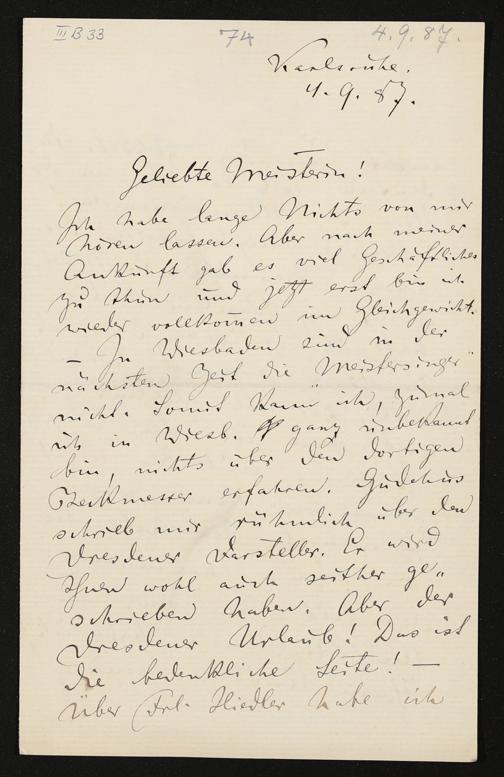 III B 33 74 4.9.87.
Karlsruhe.
4. 9. 87.
Geliebte Meisterin!
Ich habe lange Nichts von mir
hören lassen. Aber nach meiner
Ankunft gab es viel Geschäftliches
zu thun und jetzt erst bin ich
wieder vollkom̄en im Gleichgewicht.
— In Wiesbaden sind in der
nächsten Zeit die „Meistersinger"
nicht. Somit kann ich, zumal
ich in Wiesb. ganz unbekannt
bin, nichts über den dortigen
Beckmesser erfahren. Gudehus
schrieb mir rühmlich über den
Dresdener Darsteller. Er wird
Ihnen wohl auch seither ge„
schrieben haben. Aber der
Dresdener Urlaub! Das ist
die bedenkliche Seite! —
Über Frl. Hiedler habe ich